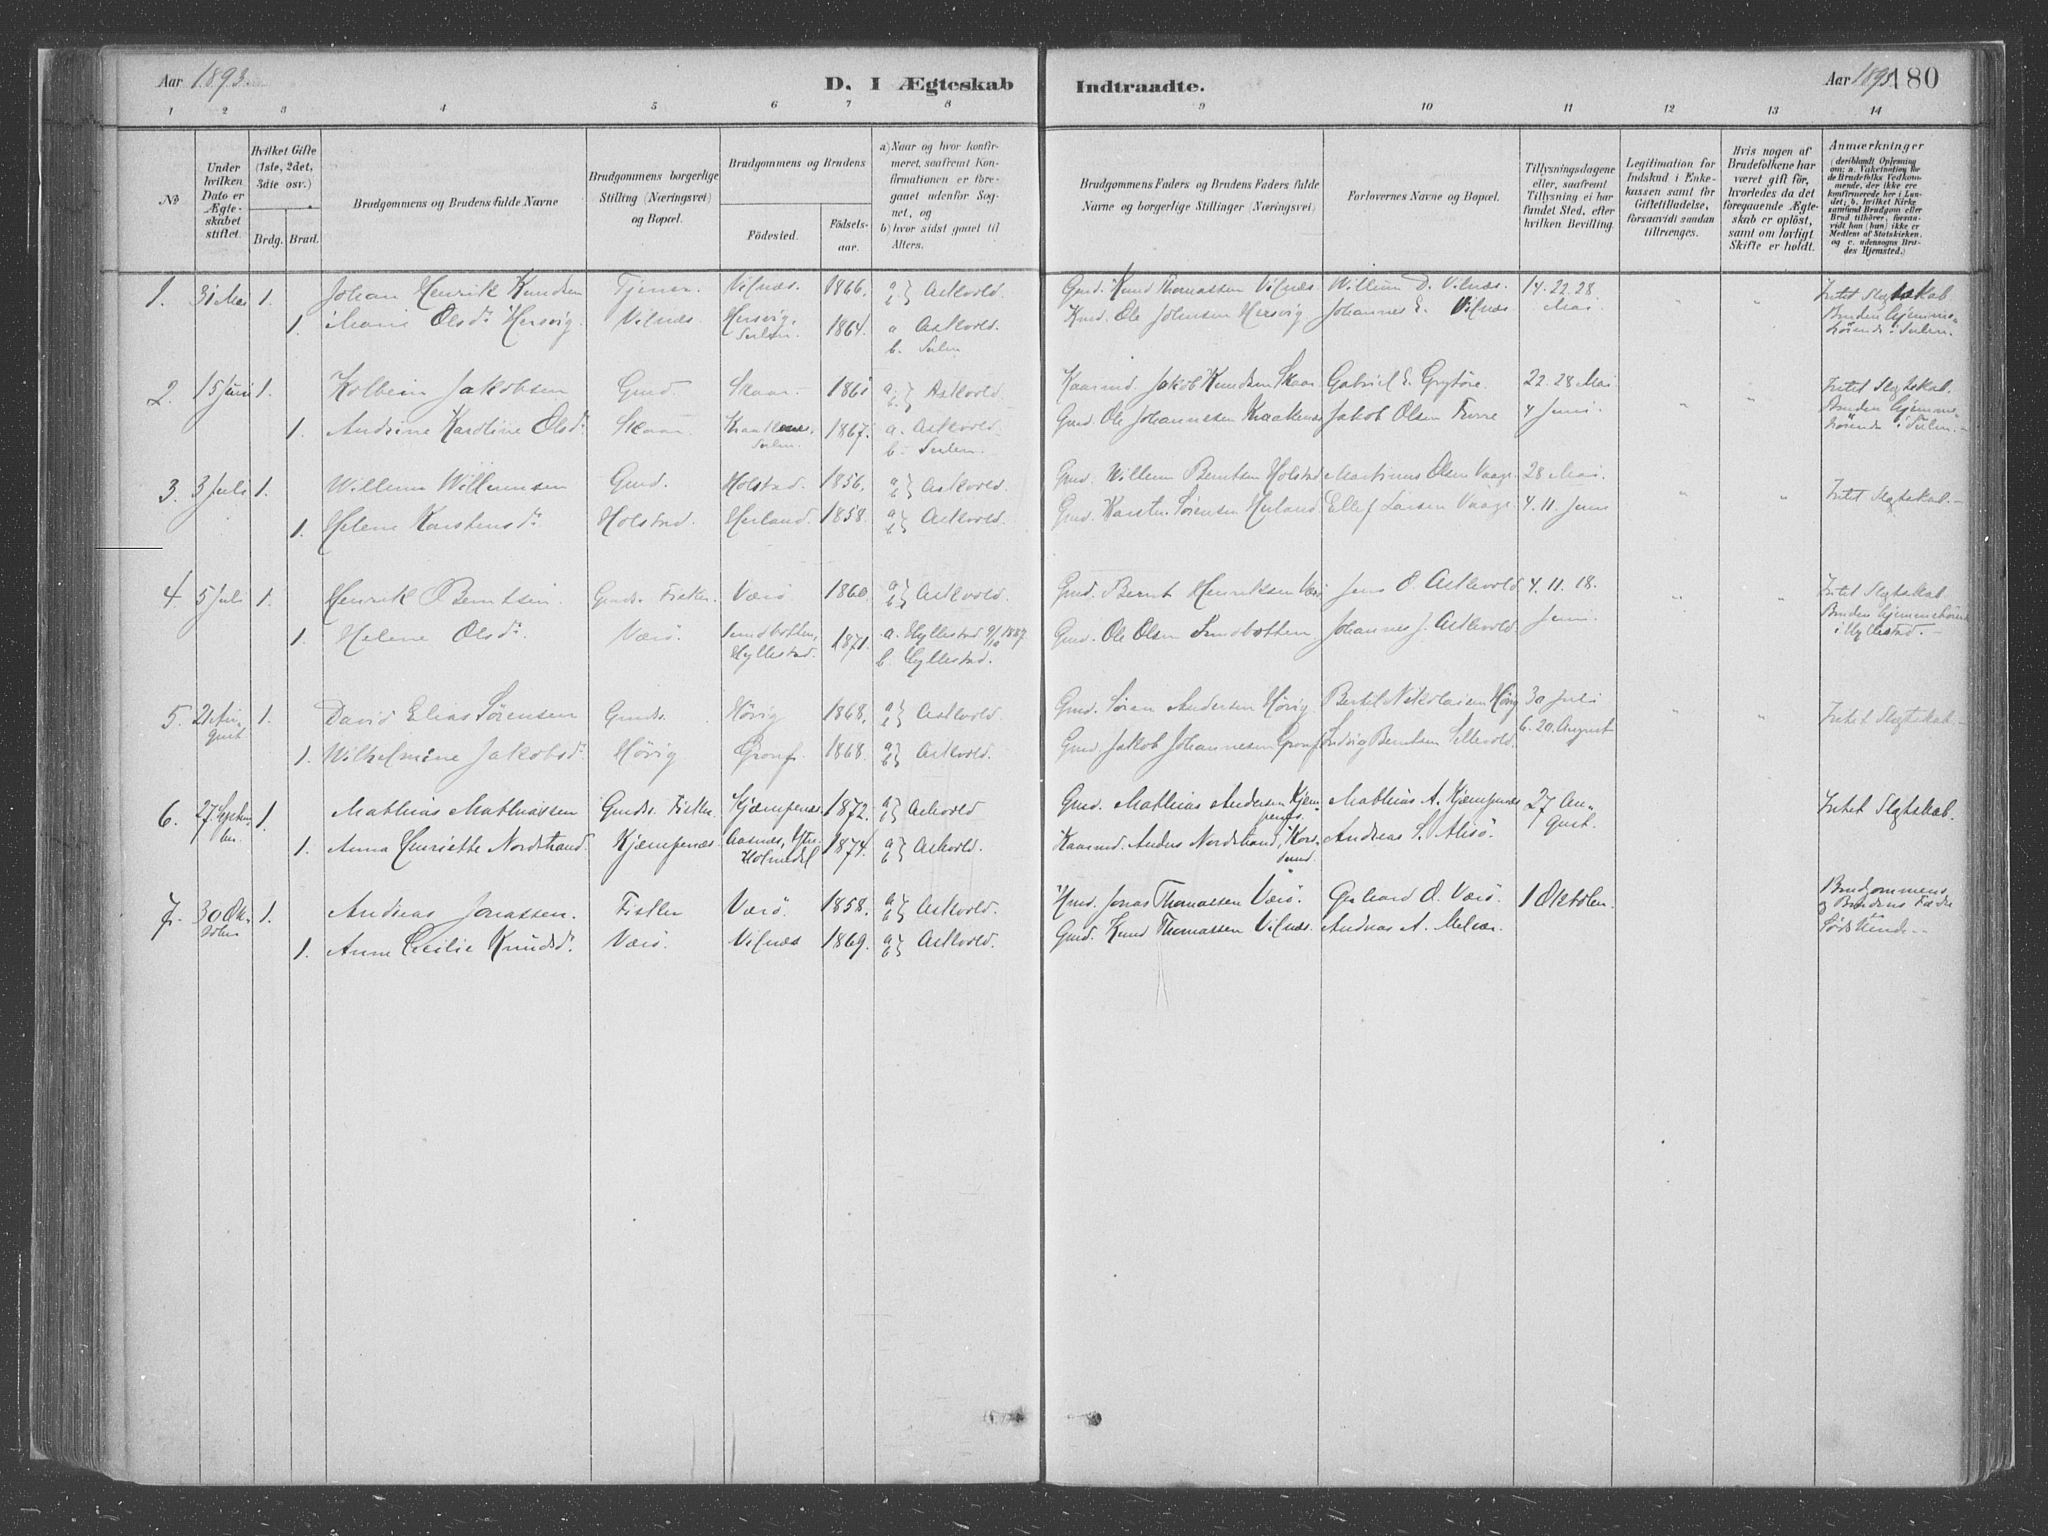 Aar 1893.
D. I Ægteskab
Indtraadte.
Aar 1893
180
1 2 3 4 5 6 7 8 9 10 11 12 13 14
No
Under hvilken Dato er Ægteskabet stiftet.
Hvilket Gifte (1ste, 2det, 3die osv.)
Brdg. Brud.
Brudgommens og Brudens fulde Navne
Brudgommens borgerlige Stilling (Næringsvei) og Bopæl.
Brudgommens og Brudens
Födested. Födselsaar.
a) Naar og hvor konfirmeret, saafremt Konfirmationen er foregaaet udenfor Sognet, og
b) hvor sidst gaaet til Alters.
Brudgommens Faders og Brudens Faders fulde Navne og borgerlige Stillinger (Næringsvei)
Forlovernes Navne og Bopæl.
Tillysningsdagene eller, saafremt Tillysning ei har fundet Sted, efter hvilken Bevilling.
Legitimation for Indskud i Enkekassen samt for Giftetilladelse, forsaavidt saadan tiltrænges.
Hvis nogen af Brudefolkene har været gift för, hvorledes da det foregaaende Ægteskab er oplöst, samt om lovligt Skifte er holdt.
Anmærkninger
(deriblandt Oplysning om: a. Vakcination for de Brudefolks Vedkommende, der ikke ere konfirmerede her i Landet; b. hvilket Kirkesamfund Brudgom eller Brud tilhörer, forsaavidt han (hun) ikke er Medlem af Statskirken, og c. udensogns Brudes Hjemsted.)
1. 31 Mai 1. Johan Henrik Knudsen Tjener Vilnæs. 1866. a b Askvold. Gmd. Knud Thomassen Vilnæs. Willum D. Vilnæs. 14. 22. 28 Intet Slægtskab
1. Marie Olsdr Hersvig. Vilnæs. Hersvig, Sulen. 1864. a Askvold. b. Sulen Gmd. Ole Johnsen Hersvig. Johannes E. Vilnæs Mai Bruden hjemmehörende i Sulen.
2. 15 Juni 1. Kolbein Jakobsen Gmd. Skaar 1861 a b Askvold. Kaarmd. Jakob Knudsen Skaar Gabriel E. Grytöre. 22. 28 Mai Intet Slægtskab.
1. Andrine Karoline Olsdr Skaar 1867. a. Askvold b. Sulen. Gmd. Ole Johannessen Jakob Olsen 4 Juni. Bruden hjemmehörende i Sulen.
3. 3 Juli 1. Willum Willumsen Gmd. Holstad 1856. a b Askvold. Gmd. Willum Berntsen Holstad Martinus Olsen Vaage. 28 Mai Intet Slægtskab.
1. Helene Karstensdr Holstad. Herland. 1858. a b Askvold. Gmd. Karsten Sörensen Herland Ellef Larsen Vaage 4. 11. Juni
4. 5 Juli 1. Henrik Berntsen. Gmds. Fisker. Værö. 1860. a b Askvold. Gmd. Bernt Henriksen Værö Jens O. Askvold 4. 11. 18. Intet Slægtskab
1. Helene Olsdr Værö. Sundbotten, Hyllestad. 1871. a. Hyllestad 9/10 1887 b. Hyllestad. Gmd. Ole Olsen Sundbotten Johannes J. Askvold. Juni Bruden hjemmehörende i Hyllestad.
5. 21 August 1. David Elias Sörensen Gmds. Hörig 1868. a b Askvold. Gmd. Sören Andersen Hörig. Bertel Nikolaisen Hörig 30 Juli Intet Slægtskab
1. Wilhelmine Jakobsdr Hörig 1868. a b Askvold. Gmd. Jakob Johannesen Ludvig Berntsen Sellevold. 6. 20 August
6. 27 September 1. Mathias Mathiassen Gmds. Fisker. Kjempenæs 1872. a b Askvold Gmd. Mathias Andersen Kjempenæs. Mathias A. Kjempenæs 27 August. Intet Slægtskab.
1. Anna Henriette Nordstrand. Kjempenæs. Aasnæs, Ytre Holmedal 1874. a b Askvold. Kaarmd. Anders Nordstrand, Korssund. Andreas S. Alisö.
7. 30 Oktober 1. Andreas Jonassen. Fisker Værö. 1858. a b Askvold. Hmd. Jonas Thomassen Værö. Gerhard O. Værö. 1 Oktober. Brudgommens og Brudens Fædre
1. Anne Cecilie Knudsdr. Værö Vilnæs 1869. a b Askvold. Gmd. Knud Thomassen Vilnæs. Andreas A. Melvær. Södskende.